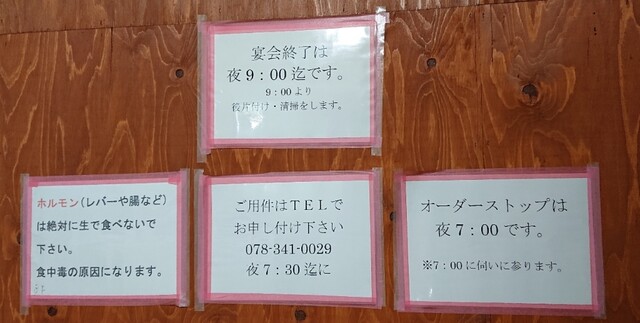 宴会終了は
夜9：00迄です。
9：00より
後片付け・清掃をします。
ホルモン（レバーや腸など）
は絶対に生で食べないで
下さい。
食中毒の原因になります。
ご用件はTELで
お申し付け下さい
078-341-0029
夜7：30迄に
オーダーストップは
夜7：00です。
※7：00に伺いに参ります。